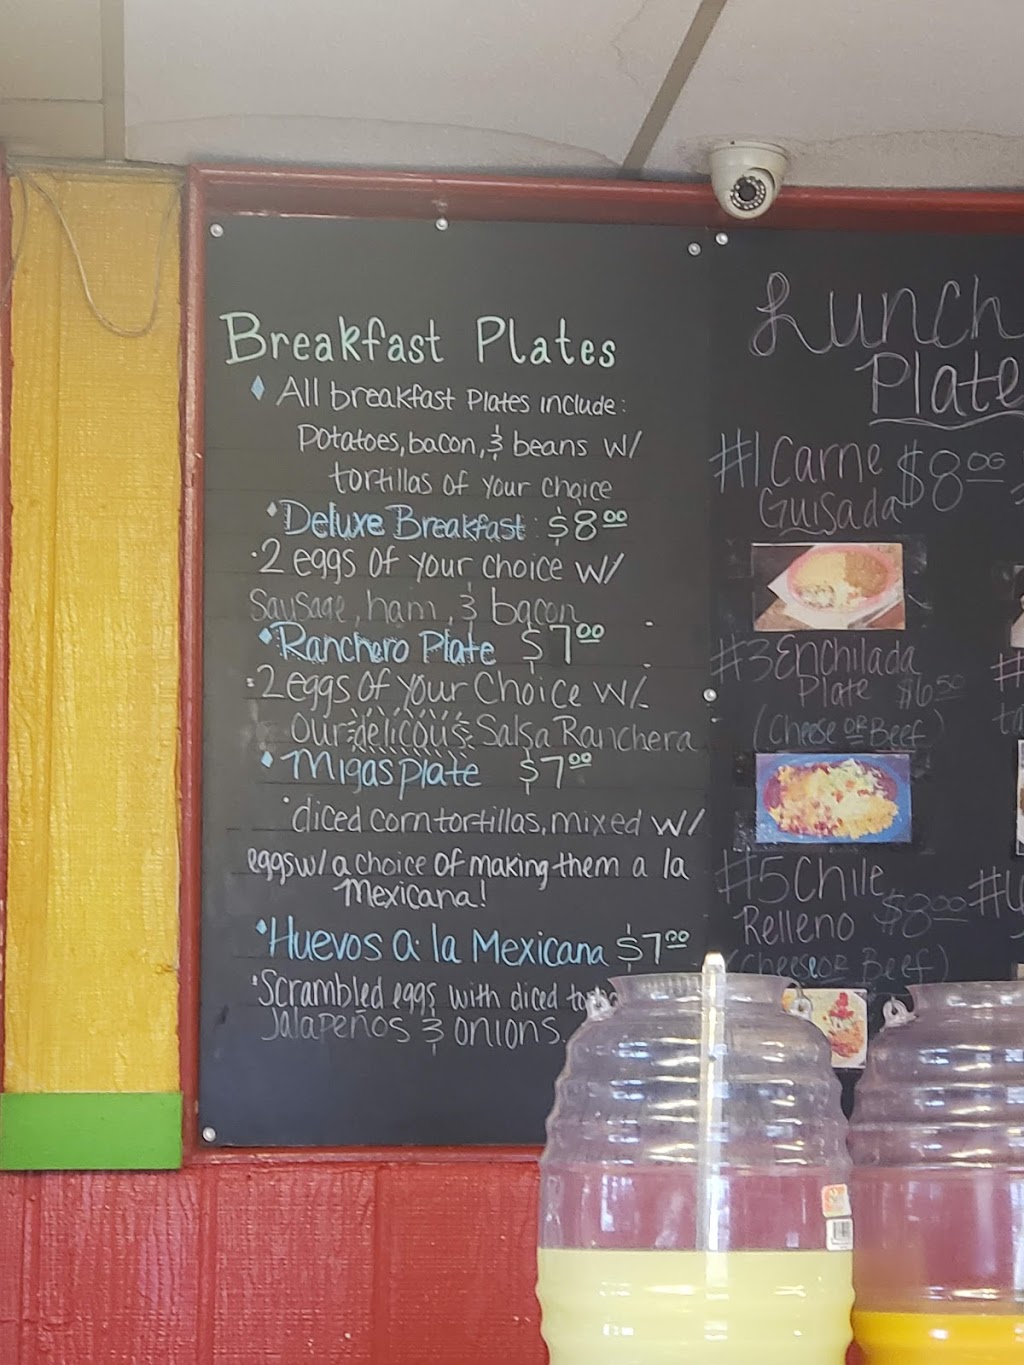 Breakfast Plates
All breakfast Plates include:
Potatoes, bacon, & beans w/
tortillas of your choice
Deluxe Breakfast: $8.00
2 eggs of your choice w/
Sausage, ham, & bacon
Ranchero Plate $7.00
2 eggs of your choice w/
our delicious Salsa Ranchera
Migas plate $7.00
diced corn tortillas, mixed w/
eggs w/ a choice of making them a la
Mexicana!
Huevos a la Mexicana $7.00
Scrambled eggs with diced
Jalapeños & onions.
Lunch
Plate
#1 Carne $8.00
Guisada
#3 Enchilada
Plate $6.50
(Cheese or Beef)
#5 Chile
Relleno $8.00
(Cheese or Beef)